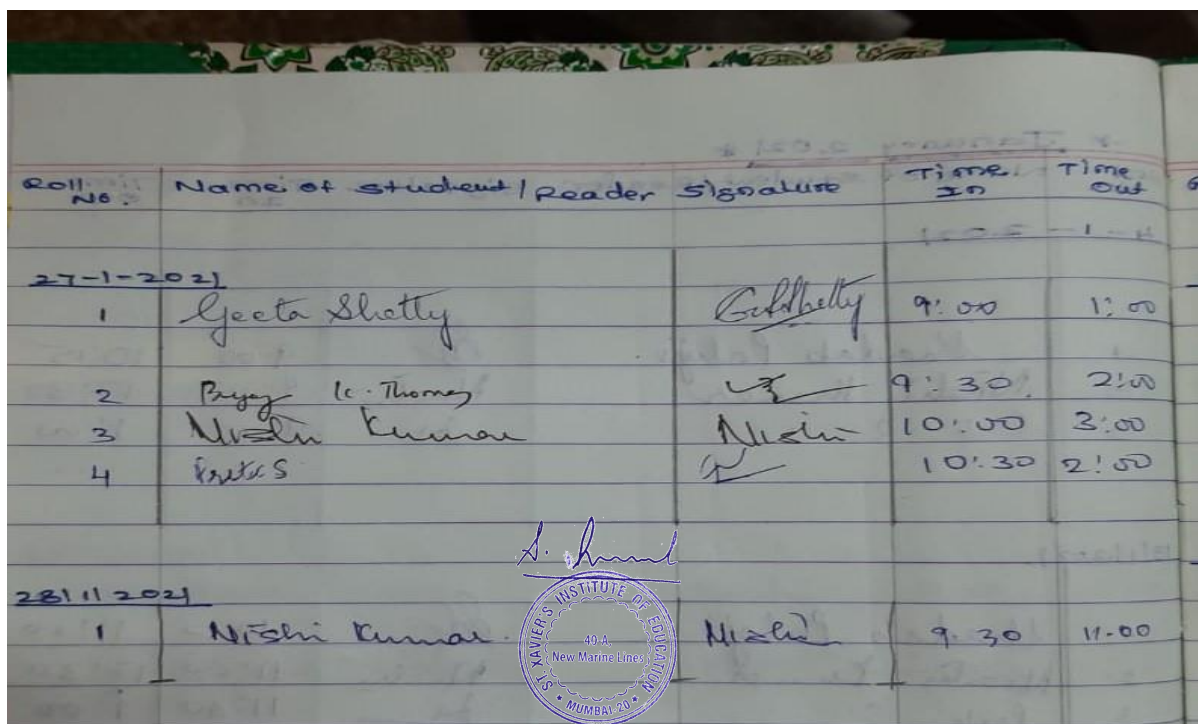 Roll No. Name of Student / Reader Signature Time In Time Out
27-1-2021
1 Geeta Shetty GShetty 9:00 1:00
2 K. Thomas 9:30 2:00
3 Nishi Kumar Nishi 10:00 3:00
4 Preta S 10:30 2:00
28/1/2021
1 Nishi Kumar. Nishi 9.30 11-00
ST XAVIER'S INSTITUTE OF EDUCATION
40-A,
New Marine Lines
MUMBAI-20